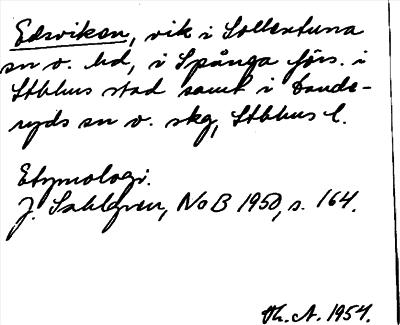 Edsviken, vik i Sollentuna
sn o. hd, i Spånga förs. i
Sthlms stad samt i Dande-
ryds sn o. skg, Sthlms l.
Etymologi.
J. Sahlgren, NoB 1950, s. 164.
Th. A. 1954.